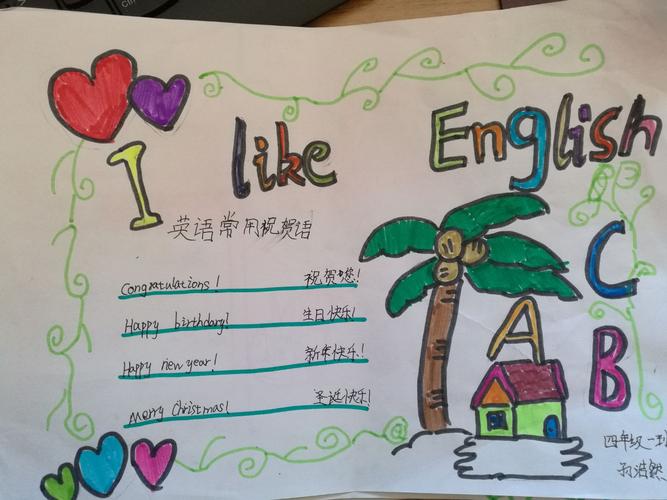 I like English
英语常用祝贺语
Congratulations! 祝贺您!
Happy birthdary! 生日快乐!
Happy new year! 新年快乐!
Merry Christmas! 圣诞快乐!
C
A
B
四年级一班